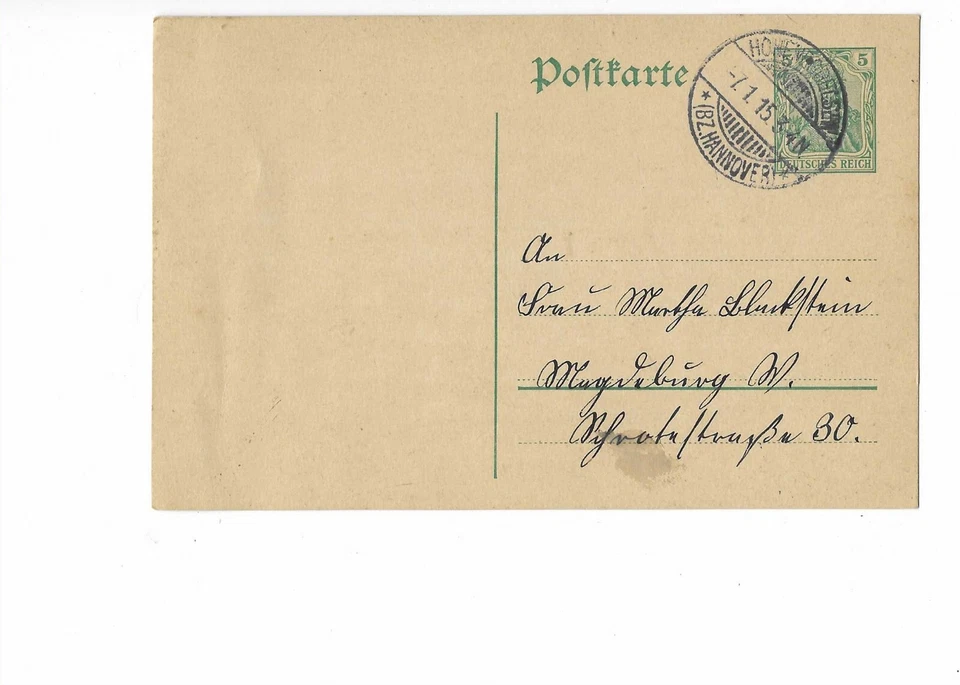 Postkarte
5 5
DEUTSCHES REICH
-7.1.15. 
* (BZ. HANNOVER) *
An
Frau Martha Blackstein
Magdeburg W.
Schrotestraße 30.